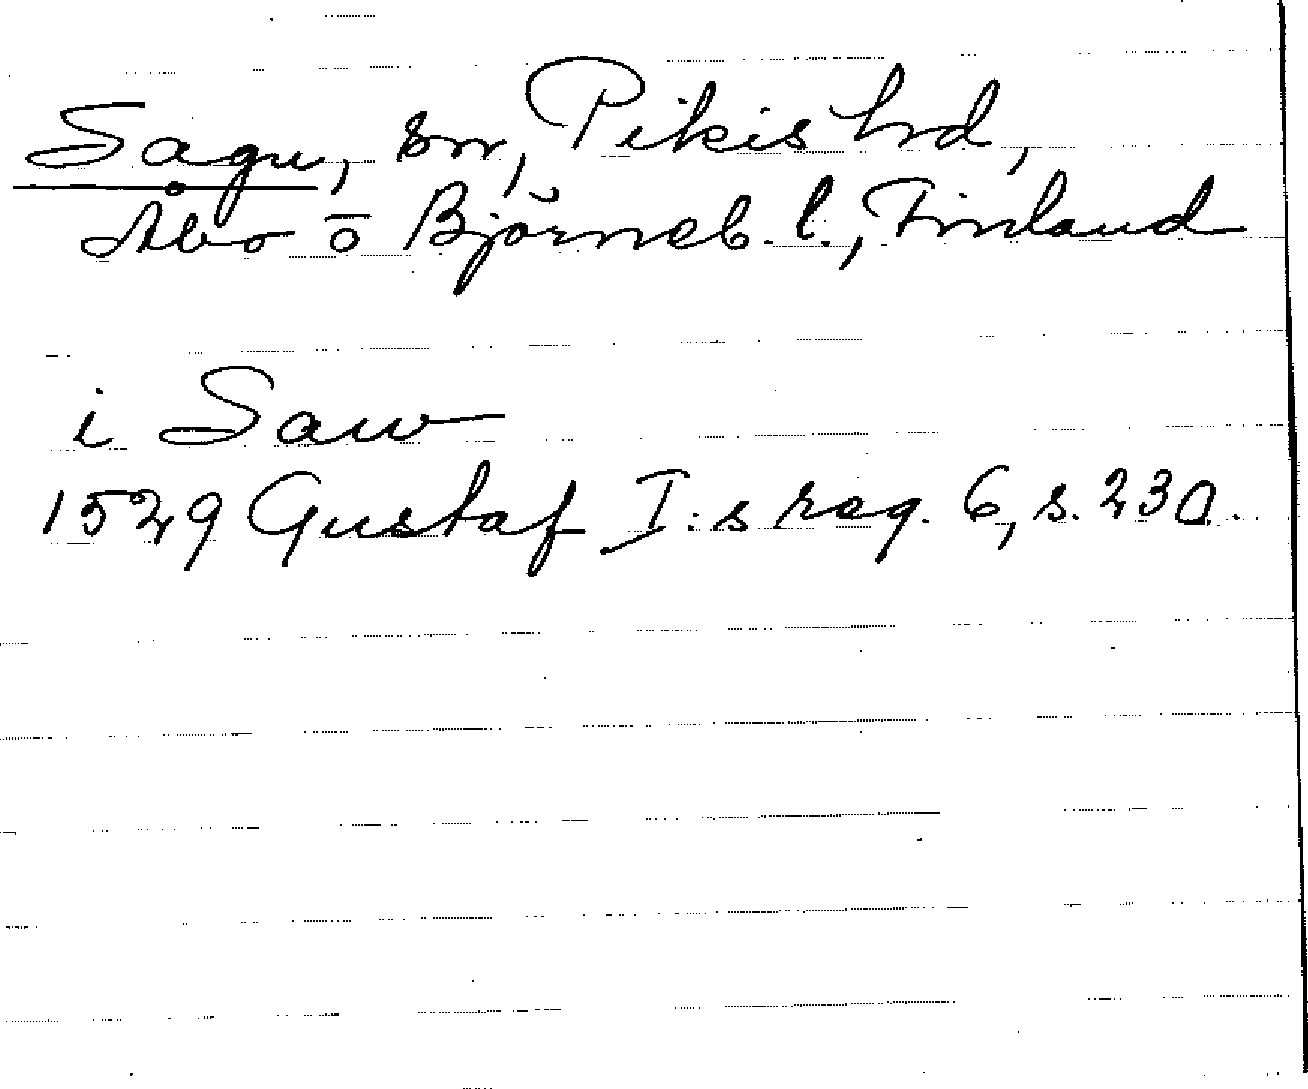 Sagu, sn, Pikis hrd,
Åbo o Björneb. l., Finland
i Sauv
1529 Gustaf I:s reg. 6, s. 230.